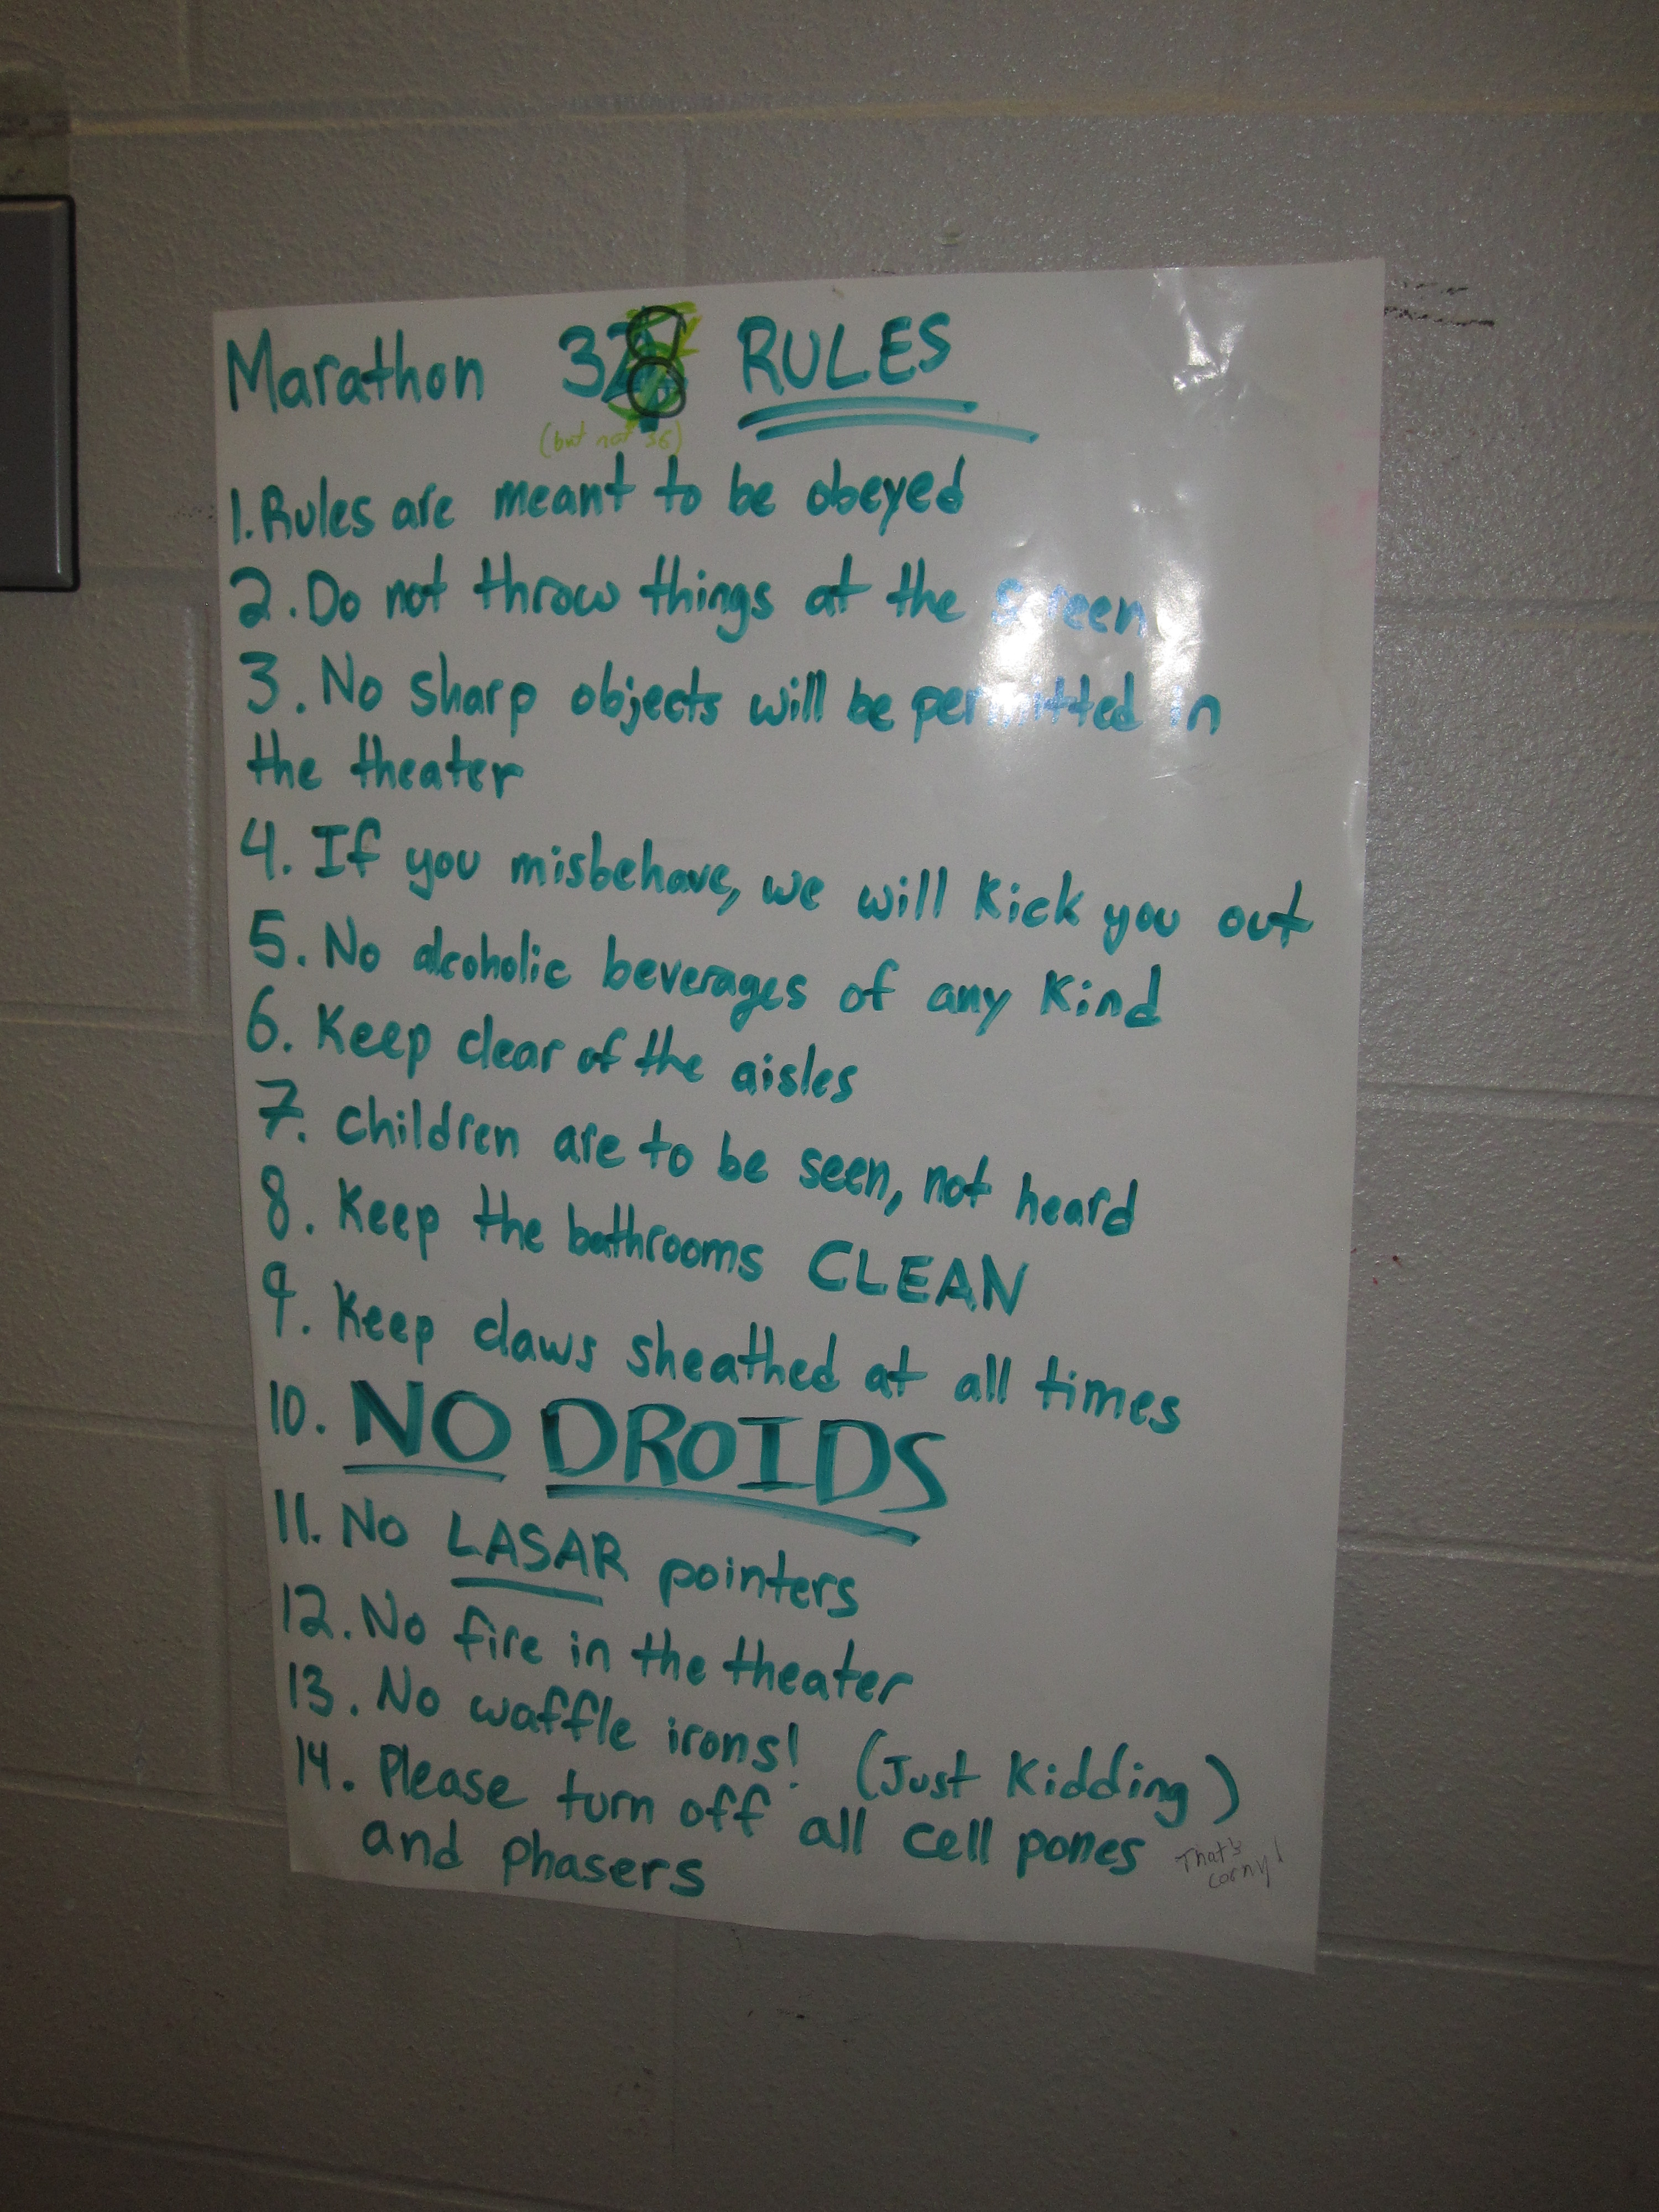 Marathon 38 RULES
(but not 36)
1. Rules are meant to be obeyed
2. Do not throw things at the screen
3. No sharp objects will be permitted in
the theater
4. If you misbehave, we will kick you out
5. No alcoholic beverages of any kind
6. Keep clear of the aisles
7. Children are to be seen, not heard
8. Keep the bathrooms CLEAN
9. Keep claws sheathed at all times
10. NO DROIDS
11. No LASAR pointers
12. No fire in the theater
13. No waffle irons! (Just Kidding)
14. Please turn off all cell pones
and phasers
That's
corny!